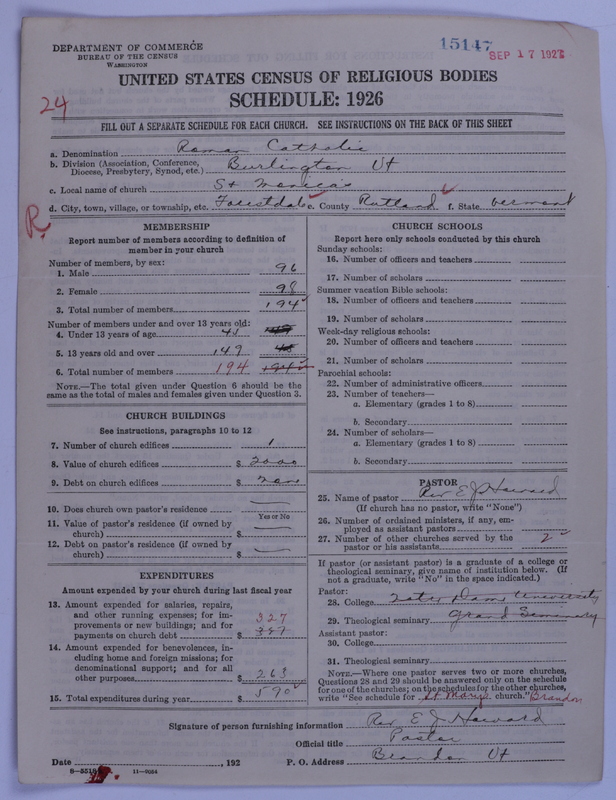 DEPARTMENT OF COMMERCE
BUREAU OF THE CENSUS
WASHINGTON
15147
SEP 17 1927
UNITED STATES CENSUS OF RELIGIOUS BODIES
SCHEDULE: 1926
24
FILL OUT A SEPARATE SCHEDULE FOR EACH CHURCH. SEE INSTRUCTIONS ON THE BACK OF THIS SHEET
a. Denomination Roman Catholic
b. Division (Association, Conference,
Diocese, Presbytery, Synod, etc.) Burlington Vt
c. Local name of church St Monica's
d. City, town, village, or township, etc. Forestdale e. County Rutland f. State Vermont
R.
MEMBERSHIP
Report number of members according to definition of
member in your church
Number of members, by sex:
1. Male 96
2. Female 98
3. Total number of members 194
Number of members under and over 13 years old:
4. Under 13 years of age 45
5. 13 years old and over 149
6. Total number of members 194 194
NOTE.—The total given under Question 6 should be the
same as the total of males and females given under Question 3.
CHURCH BUILDINGS
See instructions, paragraphs 10 to 12
7. Number of church edifices 1
8. Value of church edifices $ 2000
9. Debt on church edifices $
10. Does church own pastor's residence
Yes or No
11. Value of pastor's residence (if owned by
church) $
12. Debt on pastor's residence (if owned by
church) $
EXPENDITURES
Amount expended by your church during last fiscal year
13. Amount expended for salaries, repairs,
and other running expenses; for im-
provements or new buildings; and for
payments on church debt $ 327
327
14. Amount expended for benevolences, in-
cluding home and foreign missions; for
denominational support; and for all
other purposes $ 263
15. Total expenditures during year $ 590
CHURCH SCHOOLS
Report here only schools conducted by this church
Sunday schools:
16. Number of officers and teachers
17. Number of scholars
Summer vacation Bible schools:
18. Number of officers and teachers
19. Number of scholars
Week-day religious schools:
20. Number of officers and teachers
21. Number of scholars
Parochial schools:
22. Number of administrative officers
23. Number of teachers—
a. Elementary (grades 1 to 8)
b. Secondary
24. Number of scholars—
a. Elementary (grades 1 to 8)
b. Secondary
PASTOR
25. Name of pastor Rev E J
(If church has no pastor, write "None")
26. Number of ordained ministers, if any, em-
ployed as assistant pastors
27. Number of other churches served by the
pastor or his assistants 2
If pastor (or assistant pastor) is a graduate of a college or
theological seminary, give name of institution below. (If
not a graduate, write "No" in the space indicated.)
Pastor:
28. College Dame University
29. Theological seminary Grand Seminary
Assistant pastor:
30. College
31. Theological seminary
NOTE.—Where one pastor serves two or more churches,
Questions 28 and 29 should be answered only on the schedule
for one of the churches; on the schedules for the other churches,
write "See schedule for St Mary's church." Brandon
Signature of person furnishing information Rev E. J.
Official title Pastor
Date , 192 P. O. Address Brandon Vt
11—9054